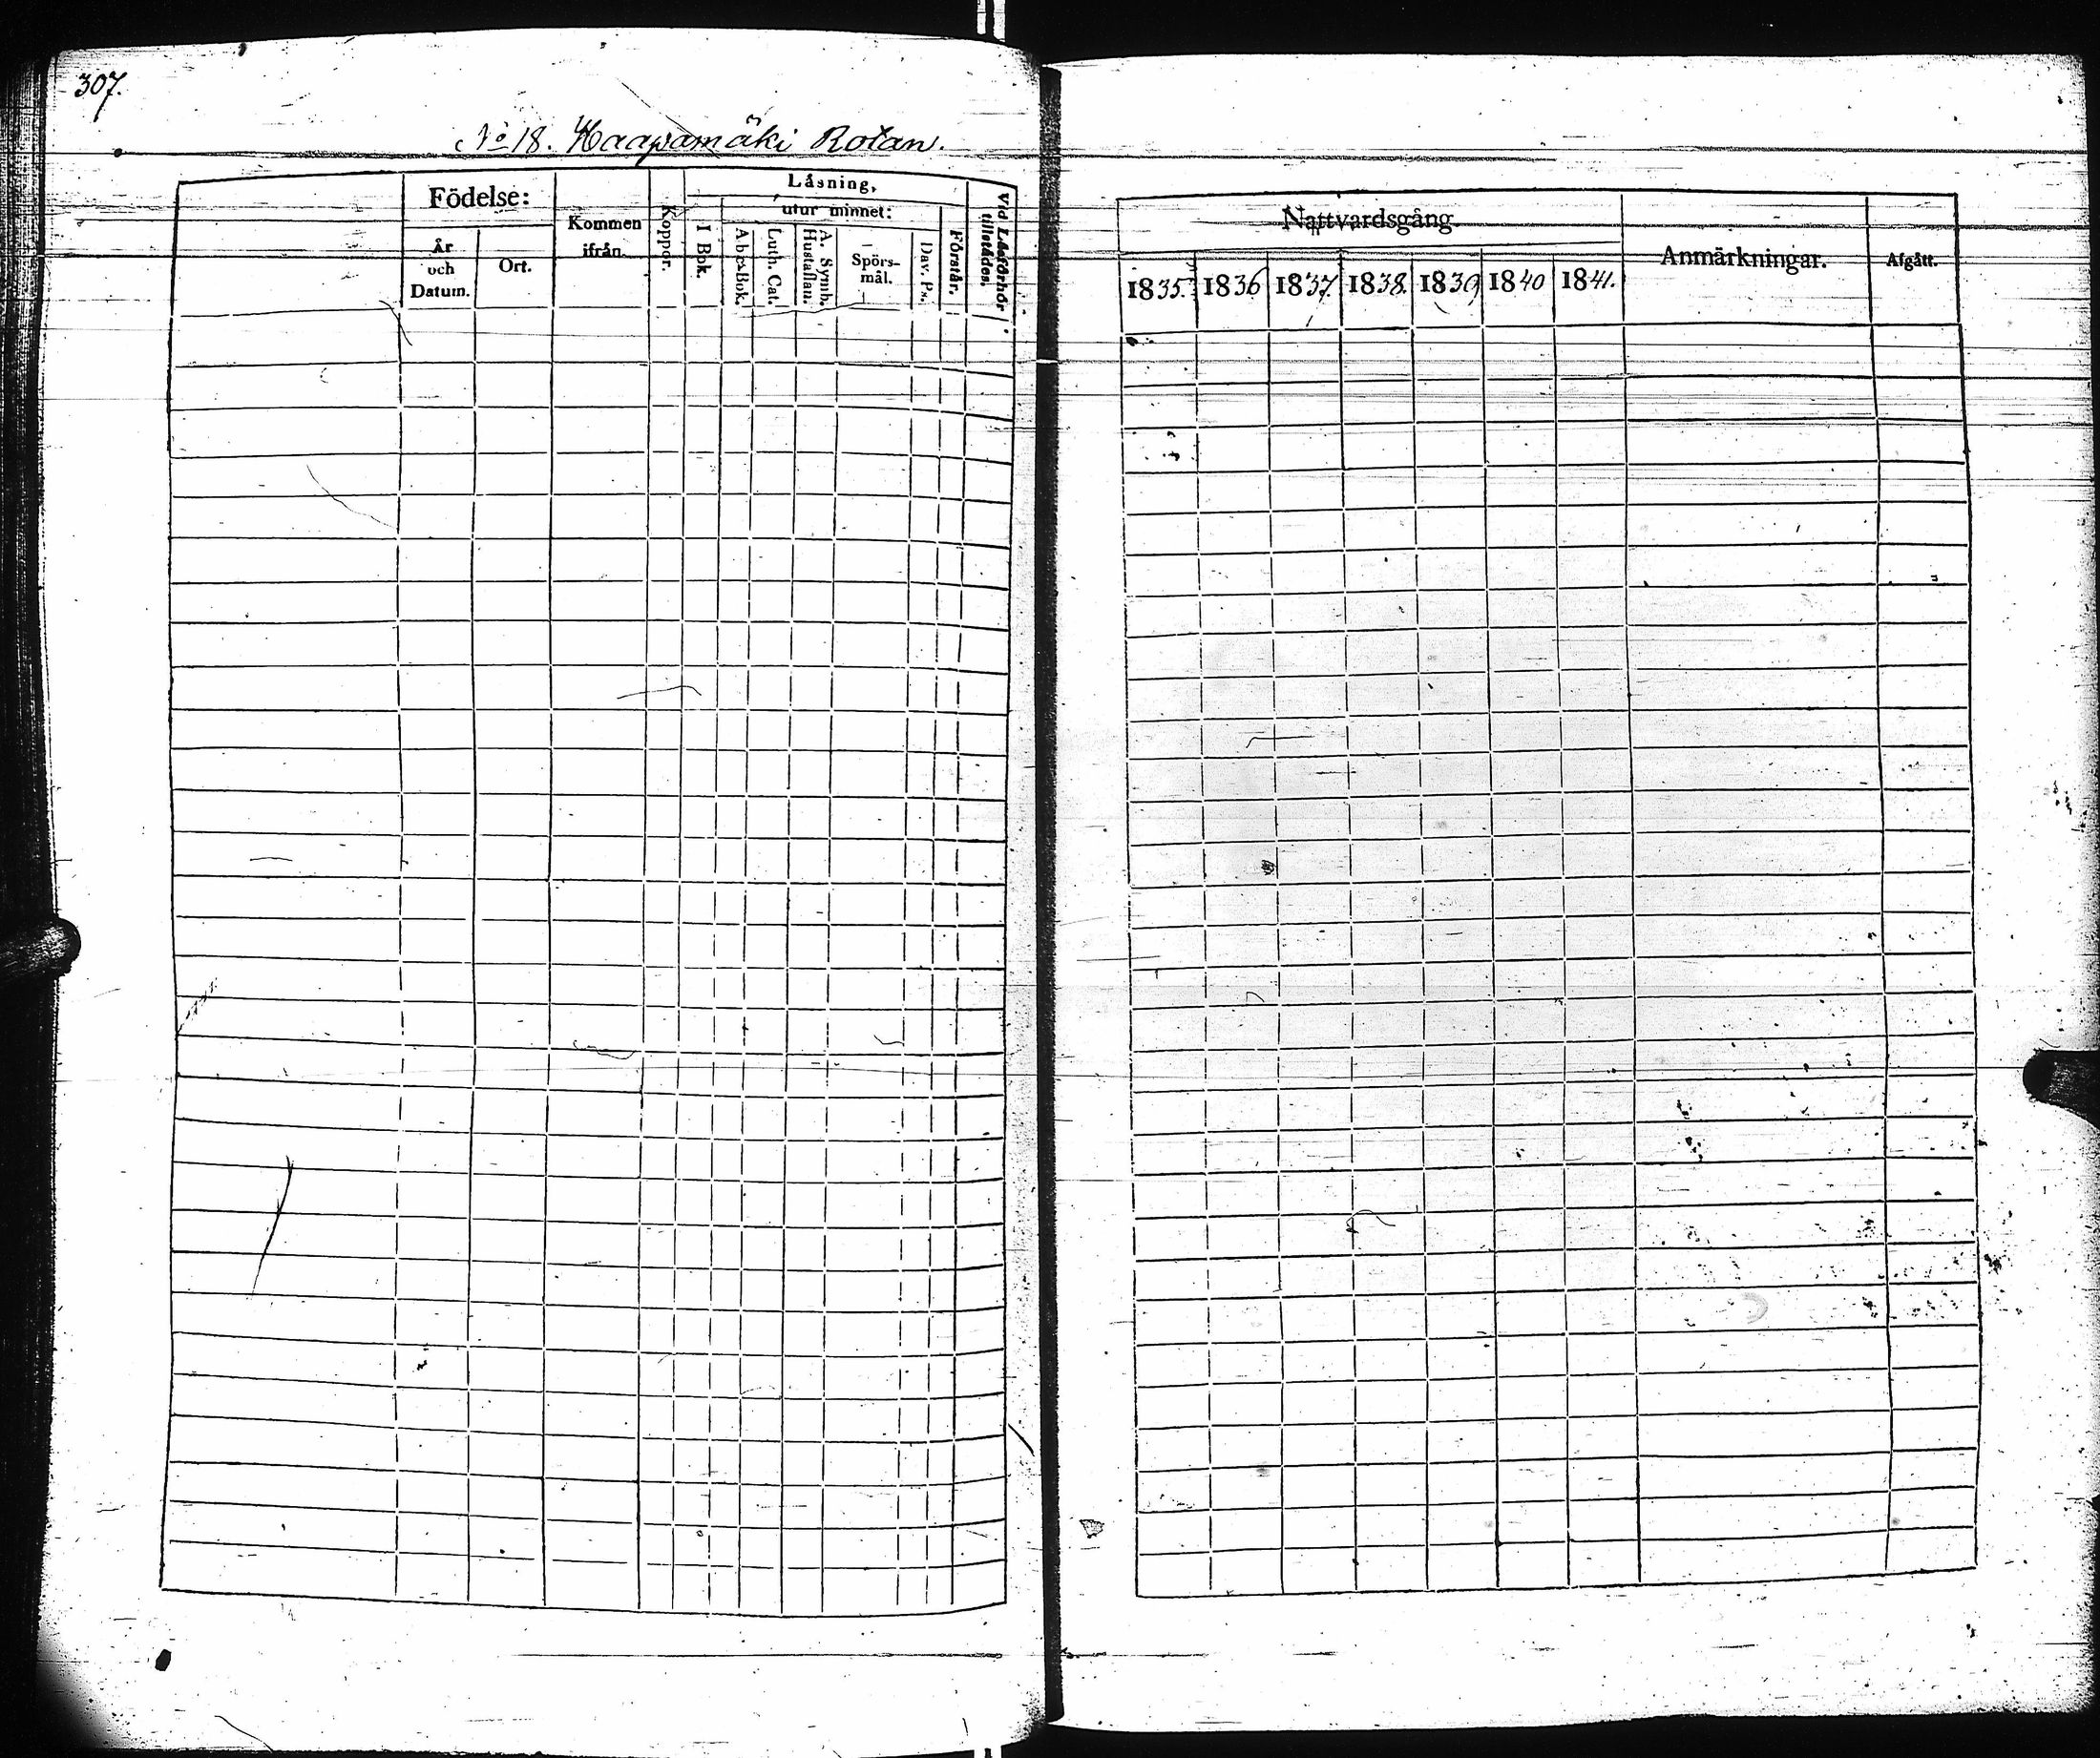 307.
No 18. Haapamäki Rotan.
Födelse:
År och Datum.
Ort.
Kommen ifrån.
Koppor.
Läsning,
utur minnet:
I Bok.
Abc-Bok.
Luth. Cat.
A. Symb. Hustaflan.
Spörs-
mål.
Dav. Ps.
Förstår.
Vid Läsförhör tillstådes.
Nattvardsgång.
1835. 1836 1837. 1838. 1839 1840 1841.
Anmärkningar.
Afgått.